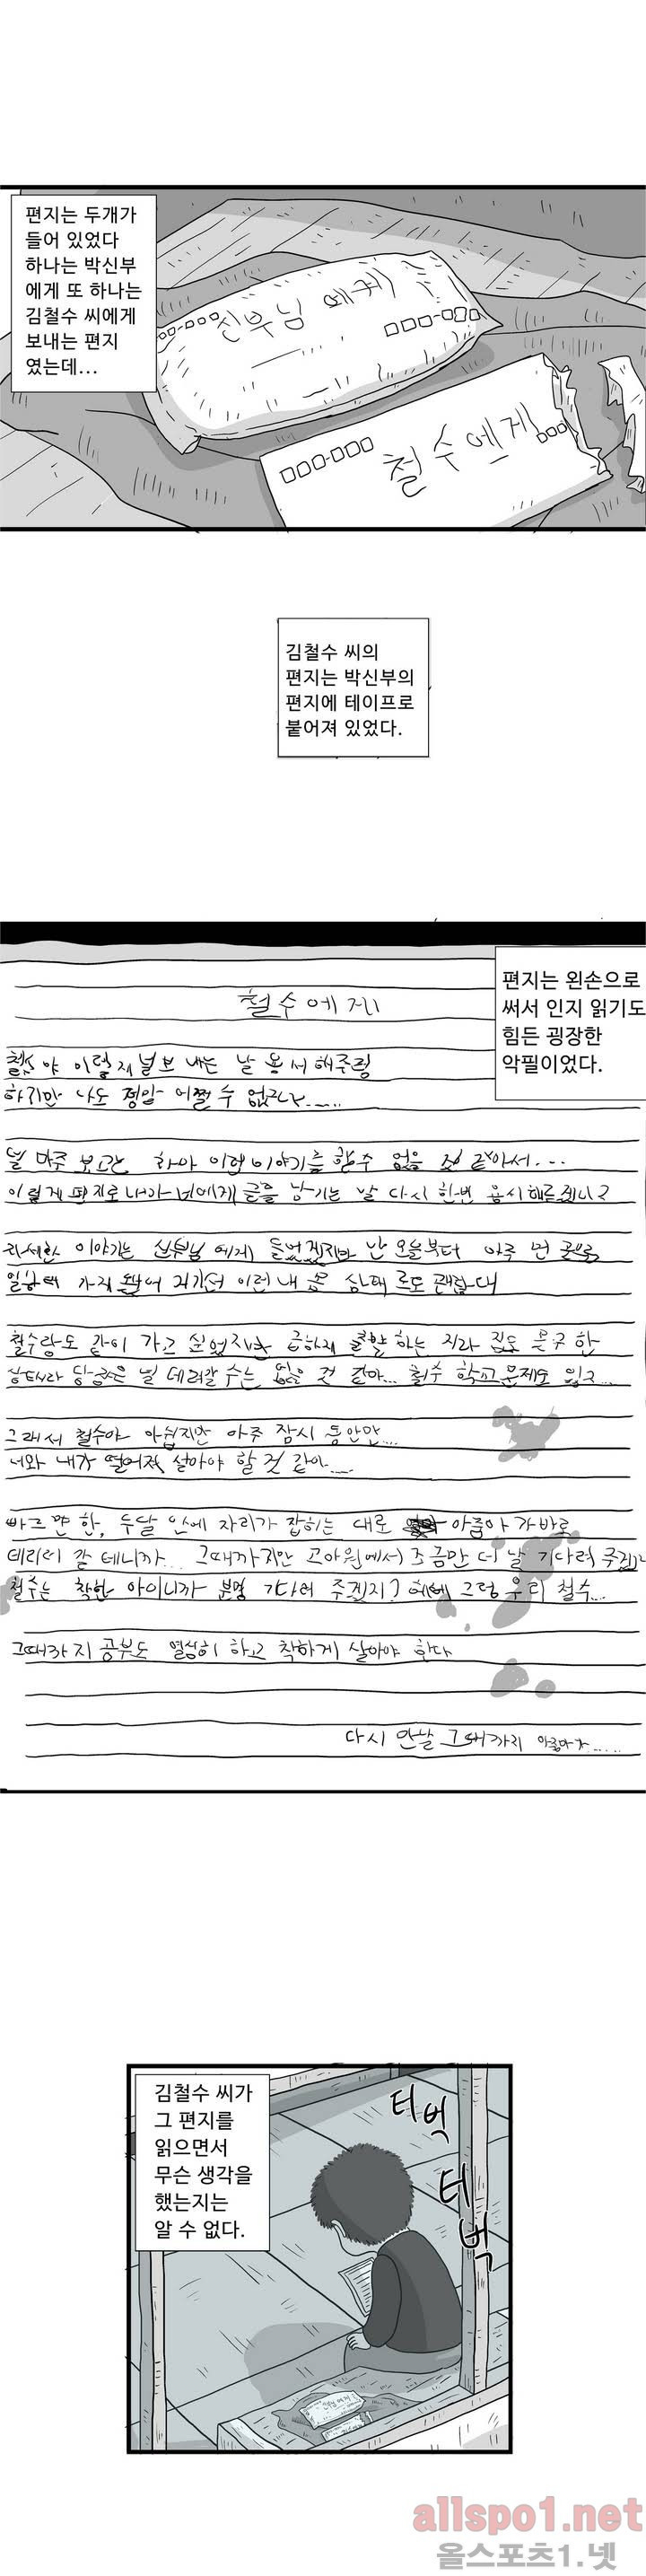 편지는 두개가
들어 있었다
하나는 박신부
에게 또 하나는
김철수 씨에게
보내는 편지
였는데...
신부님 에게
철수에게
김철수 씨의
편지는 박신부의
편지에 테이프로
붙어져 있었다.
편지는 왼손으로
써서 인지 읽기도
힘든 굉장한
악필이었다.
철수에게
철수야 이렇게 널 보내는 날 용서해주렴
하지만 나도 정말 어쩔 수 없구나.....
널 마주 보고는 하아 이런 이야기를 할수 없을 것 같아서...
이렇게 편지로 내가 너에게 글을 남기는 날 다시 한번 용서해주겠니?
자세한 이야기는 신부님에게 들었겠지만 난 오늘부터 아주 먼 곳으로
일하러 가게 됐어 거기선 이런 내 몸 상태로도 괜찮대
철수랑도 같이 가고 싶었지만 급하게 출발하는 지라 집도 못구한
상태라 당장은 널 데려갈 수는 없을 것 같아... 철수 학교문제도 있고...
그래서 철수야 아쉽지만 아주 잠시 동안만...
너와 내가 떨어져 살아야 할 것 같아....
빠르면 한, 두달 안에 자리가 잡히는 대로 아줌마가 바로
데리러 갈 테니까... 그때까지만 고아원에서 조금만 더 날 기다려 주겠니
철수는 착한 아이니까 분명 기다려 주겠지? 헤헤 그럼 우리 철수...
그때까지 공부도 열심히 하고 착하게 살아야 한다
다시 만날 그때까지 아줌마가.....
김철수 씨가
그 편지를
읽으면서
무슨 생각을
했는지는
알 수 없다.
터벅
터벅
allspo1.net
올스포츠1.넷